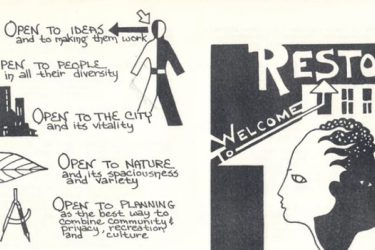 OPEN TO IDEAS
and to making them work
OPEN TO PEOPLE
in all their diversity
OPEN TO THE CITY
and its vitality
OPEN TO NATURE
and its spaciousness
and variety
OPEN TO PLANNING
as the best way to
combine community &
privacy, recreation
and culture
WELCOME
TO
RESTO